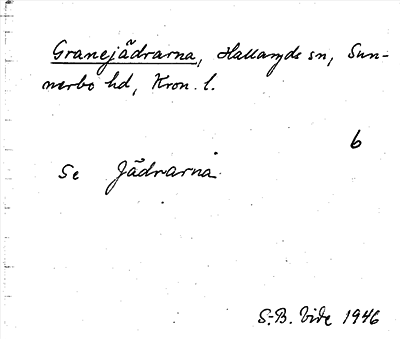 Granejädrarna, Hallaryds sn, Sun-
nerbo hd, Kron. l.
6
Se Jädrarna.
S.-B. Vide 1946